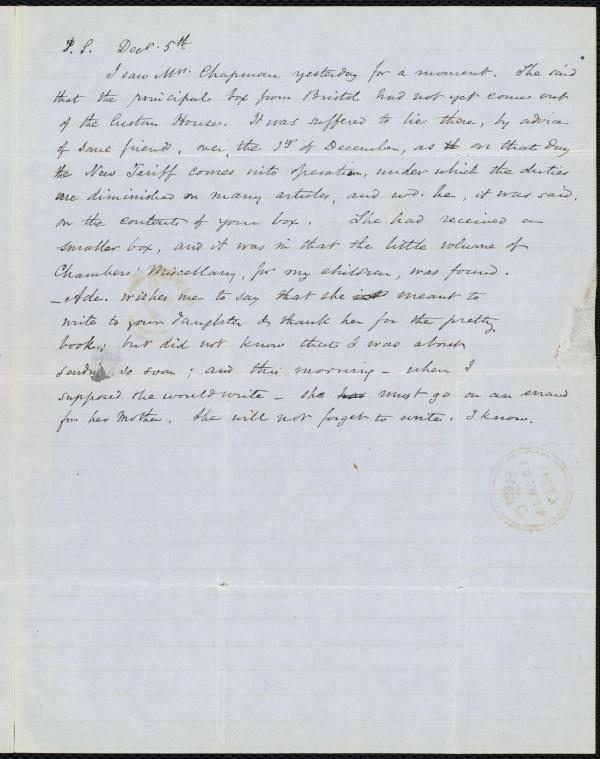 P.S. Decr. 5th.
I saw Mrs. Chapman yesterday for a moment. She said
that the principal box from Bristol had not yet come out
of the Custom House. It was suffered to lie there, by advice
of some friend, over the 1st of December, as on that day
the New Tariff comes into operation, under which the duties
are diminished on many articles, and wd. be, it was said,
on the contents of your box. She had received a
smaller box, and it was in that the little volume of
Chambers' Miscellany, for my children, was found.
— Ade. wishes me to say that she meant to
write to your daughter & thank her for the pretty
book; but did not know that I was about
sendg. so soon; and this morning – when I
supposed she would write – she must go on an errand
for her Mother. She will not forget to write. I know.